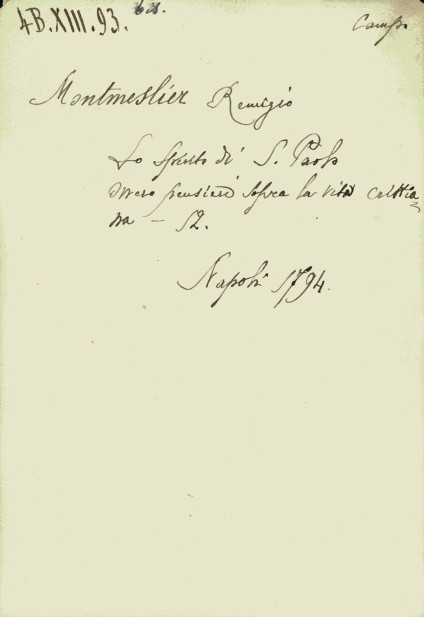 4B.XIII.93. bis.
Camp.
Montmeslier Remigio
Lo Spirito di S. Paolo
ovvero pensieri sopra la vita cristia
na - 12.
Napoli 1794.